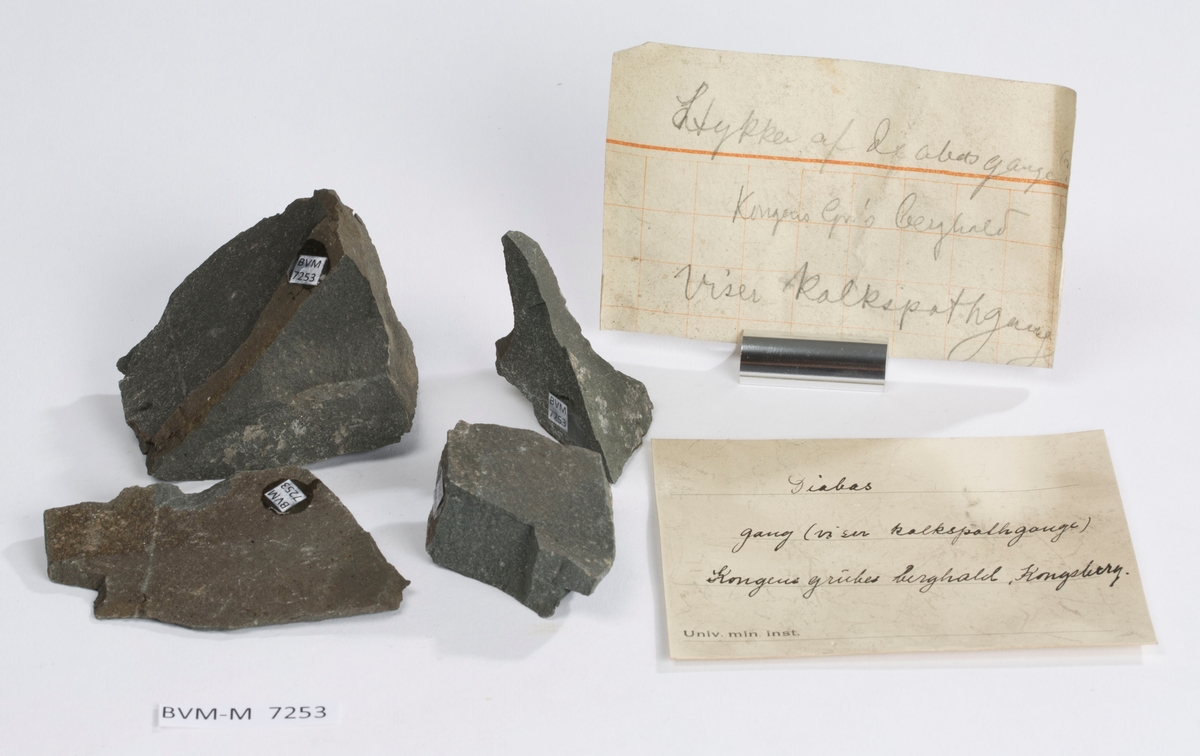 Stykker af Diabasgange?
Kongens Gr's berghald
Viser kalkspathgange
BVM
7253
BVM
7253
BVM
7253
Diabas
gang (viser kalkspathgange)
Kongens grubes berghald, Kongsberg.
Univ. min. inst.
BVM-M 7253